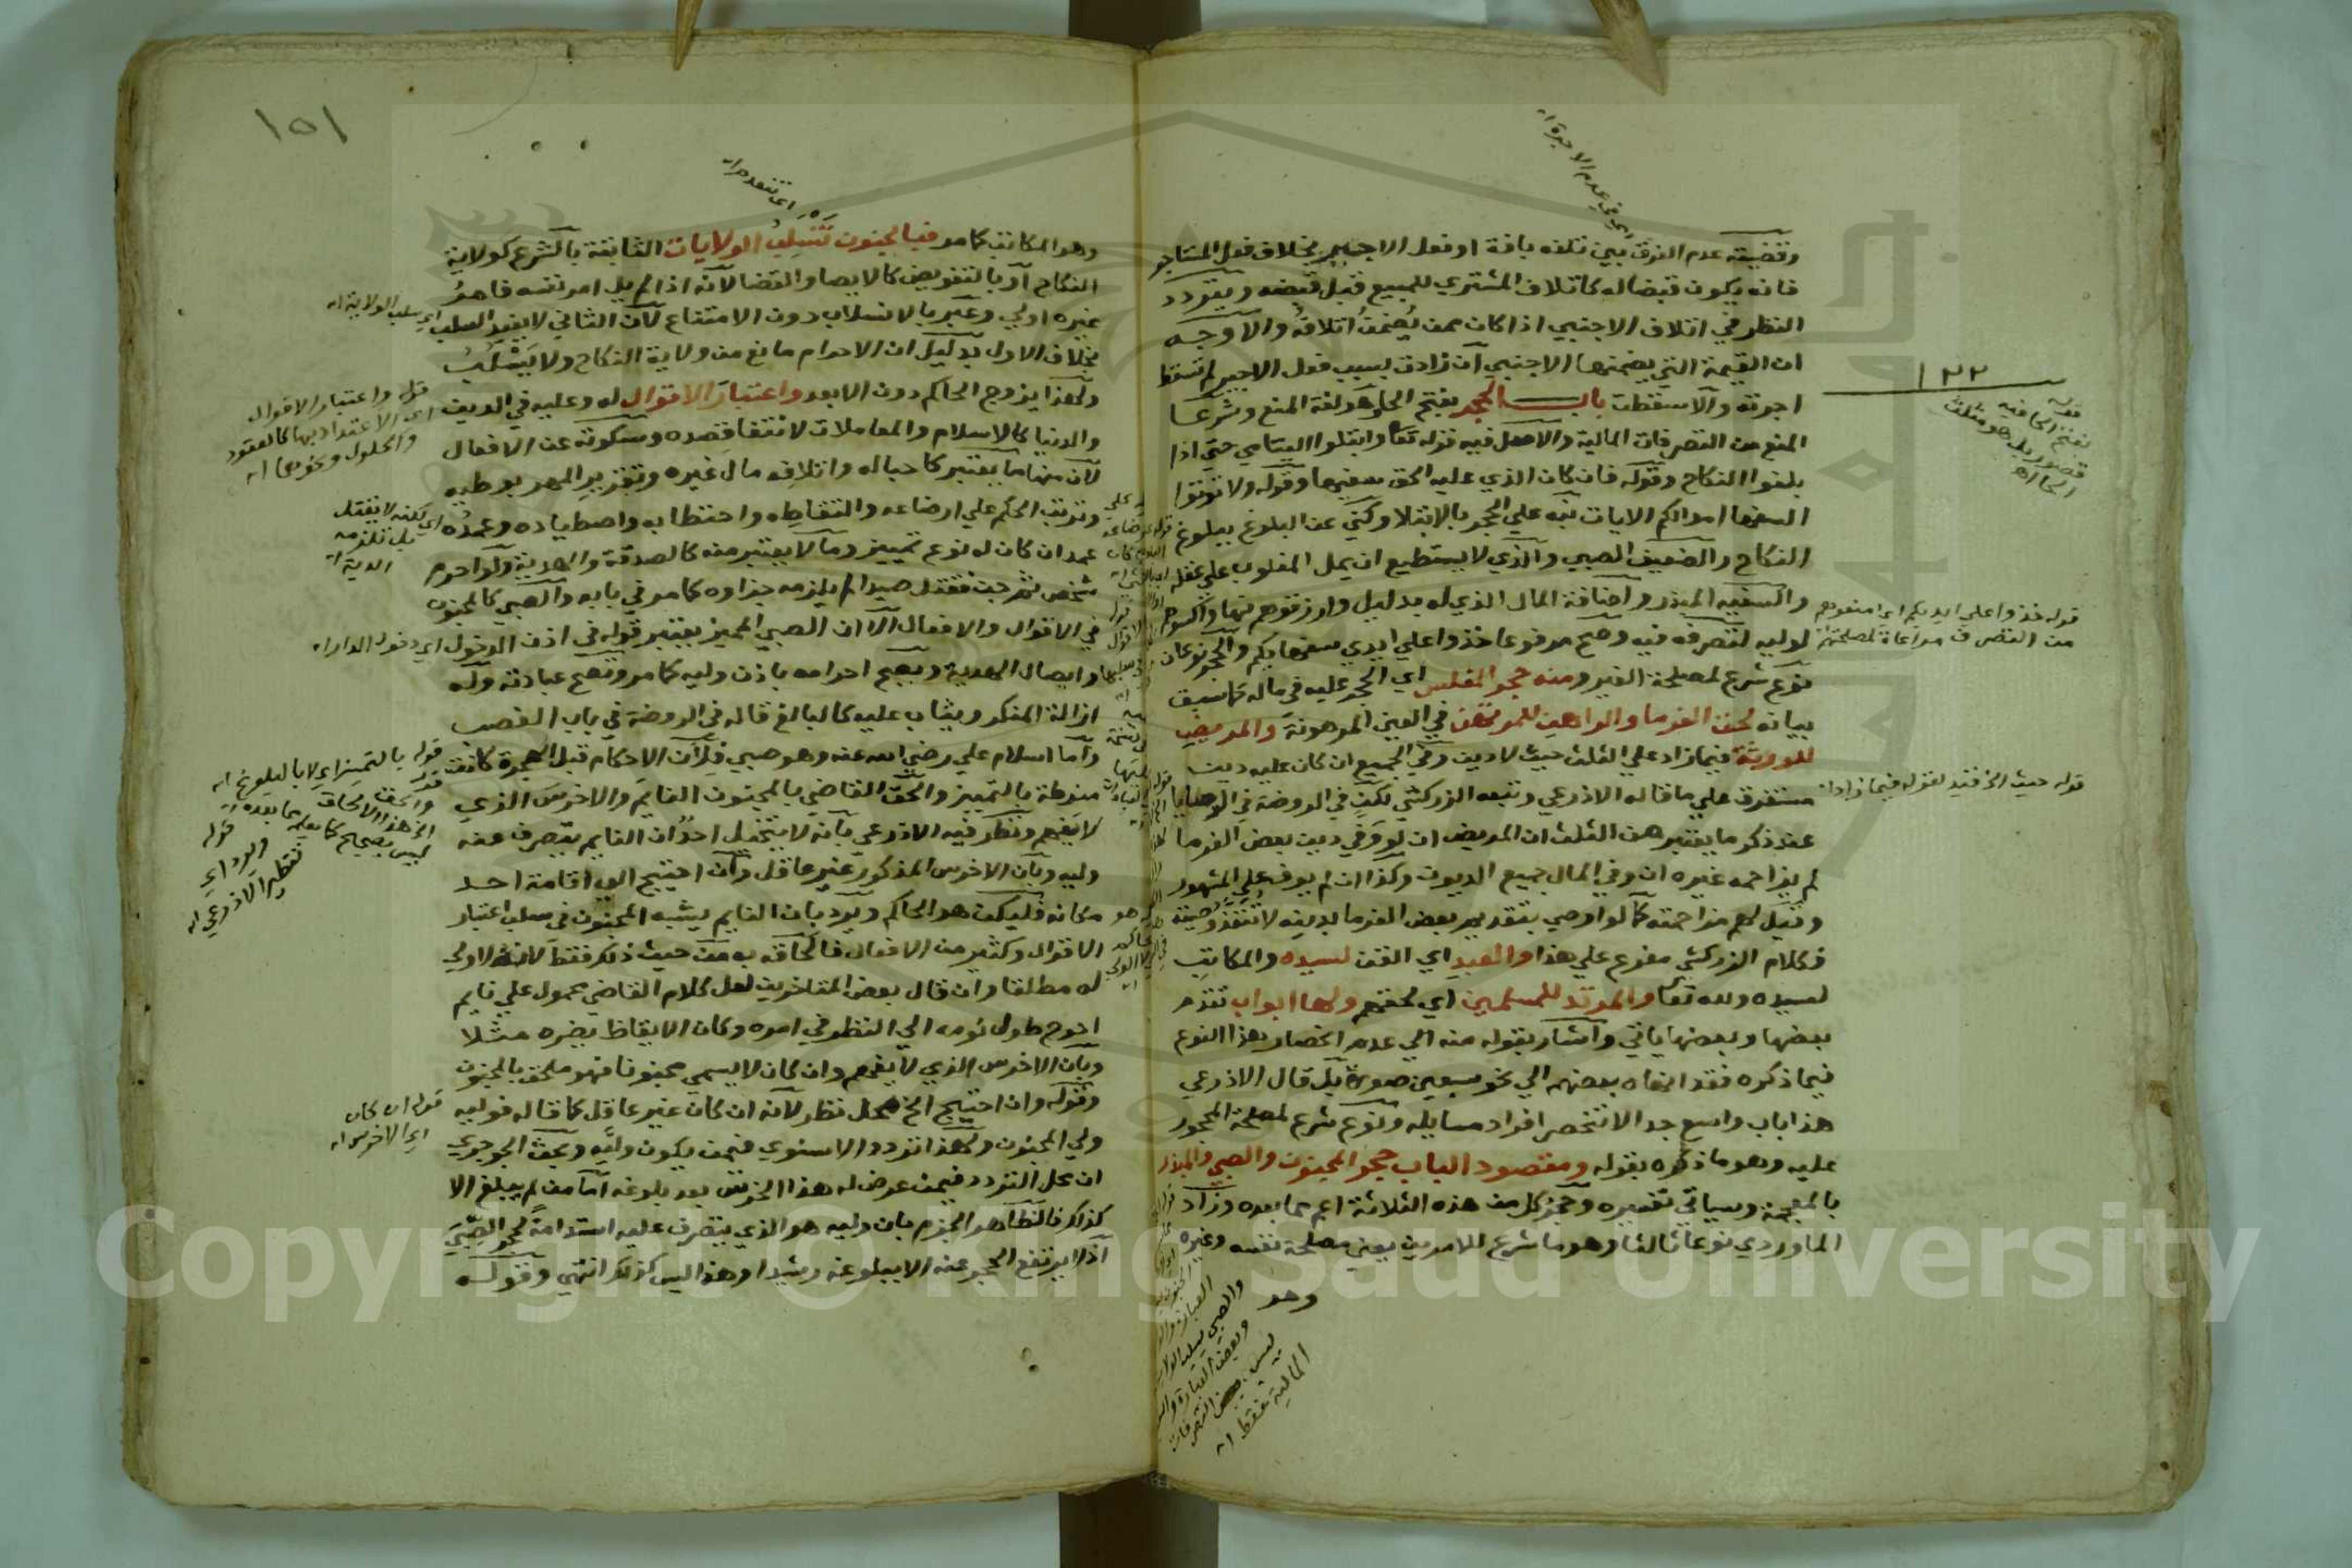 وقضيته عدم الفرق بين تلفه بافة او فعل الاجير بخلاف فعل المستاجر
فانه يكون قبضا له كاتلاف المشتري للمبيع قبل قبضه ويتردد
النظر في اتلاف الاجنبي اذا كان ممن يُضمن اتلافهُ والاوجه
ان القيمة التي يضمنها الاجنبي ان زادت بسبب فعل الاجير لم تسقط
اجرته والا سقطت باب الحجر بفتح الحا هو لغة المنع وشرعا
المنع من التصرفات المالية والاصل فيه قوله تعا وابتلوا اليتامي حتي اذا
بلغوا النكاح وقوله فان كان الذي عليه الحق سفيها وقوله ولا توتوا
السفها اموالكم الايات نبه علي الحجر بالابتلا وكني عن البلوغ ببلوغ
النكاح والضعيف الصبي والذي لا يستطيع ان يمل المغلوب علي عقله
والسفيه المبذر واضافة المال الذي له بدليل وارزقوهم فيها واكسوهم
لوليه لتصرفه فيه وصح مرفوعا خذوا علي ايدي سفهايكم والحجر نوعان
نوع شرع لمصلحة الغير ومنه حجر المفلس اي الحجر عليه في ماله كما سبق
بيانه لحق الغرما والراهن للمرتهن في العين المرهونة والمريض
للورثة فيما زاد علي الثلث حيث لا دين وفي الجميع ان كان عليه دين
مستغرق علي ما قاله الاذرعي وتبعه الزركشي لكن في الروضة في الوصايا
عند ذكر ما يعتبر من الثلث ان المريض ان لو وفي دين بعض الغرما
لم يزاحمه غيره ان وفي المال جميع الديون وكذا ان لم يوف علي المشهور
وقيل لهم مزاحمته كما لو اوصي بتقديم بعض الغرما بدينه لا تنفذ وصيته
فكلام الزركشي مفرع علي هذا والعبد اي القن لسيده والمكاتب
لسيده ولله تعا والمرتد للمسلمين اي لحقهم ولها ابواب تقدم
بعضها وبعضها ياتي واشار بقوله منه الي عدم انحصار هذا النوع
فيما ذكره فقد انهاه بعضهم الي نحو سبعين صورة بل قال الاذرعي
هذا باب واسع جدا لا تنحصر افراد مسايله ونوع شرع لمصلحة المحجور
عليه وهو ما ذكره بقوله ومقصود الباب حجر المجنون والصبي والمبذر
بالمعجمة وسياتي تفسيره وحجر كل من هذه الثلاثة اعم مما بعده وزاد
الماوردي نوعا ثالثا وهو ما شرع للامرين يعني مصلحة نفسه وغيره
وهو
١٢٢
قوله بفتح الحا فيه
قصور بل هو مثلث
الحا اه
قوله خذوا علي ايديكم اي امنعوهم
من التصرف مراعاة لمصلحتهم
قوله حيث الخ قيد لقوله فيما زاد اه
والصبي يسلب الولاية
وبعض العبارة
بعض التصرفات
المالية فقط اه
١٥١
اي تنعدم اه
وهو المكاتب كما مر فبالجنون تَنسلِبُ الولايات الثابتة بالشرع كولاية
النكاح او بالتفويض كالايصا والقضا لانه اذا لم يل امر نفسه فامرُ
غيره اولي وعبر بالانسلاب دون الامتناع لان الثاني لا يفيد السلب
بخلاف الاول بدليل ان الاحرام مانع من ولاية النكاح ولا يَسْلُبُ
ولهذا يزوج الحاكم دون الابعد واعتبار الاقوال له وعليه في الدين
والدنيا كالاسلام والمعاملات لانتفا قصده وسكوته عن الافعال
لان منها ما يعتبر كاحباله واتلافه مال غيره وتقرير المهر بوطيه
وترتب الحكم علي ارضاعه والتقاطه واحتطابه واصطياده وعمدُه
عمد ان كان له نوع تمييز وما لا يعتبر منه كالصدقة والهدية ولو احرم
شخص ثم جن فقتل صيدا لم يلزمه جزاوه كما مر في بابه والصبي كالمجنون
في الاقوال والافعال الا ان الصبي المميز يعتبر قوله في اذن الدخول
وايصال الهدية ويصح احرامه باذن وليه كما مر وتصح عبادته وله
ازالة المنكر ويثاب عليه كالبالغ قاله في الروضة في باب الغصب
واما اسلام علي رضي الله عنه وهو صبي فلان الاحكام قبل الهجرة كانت
منوطة بالتمييز والحق القاضي بالمجنون النايم والاخرس الذي
لا يفهم ونظر فيه الاذرعي بانه لا يتخيل احدٌ ان النايم يتصرف عنه
وليه وبان الاخرس المذكور غير عاقل وان احتيج الي اقامة احد
مكانه فليكن هو الحاكم ويرد بان النايم يشبه المجنون في سلب اعتبار
الاقوال وكثير من الافعال فالحاقه به من حيث ذلك فقط لانه لا ولي
له مطلقا وان قال بعض المتاخرين لعل كلام القاضي محمول علي نايم
احوج طول نومه الي النظر في امره وكان الايقاظ يضره مثلا
وبان الاخرس الذي لا يفهم وان كان لا يسمي مجنونا فهو ملحق بالمجنون
وقوله وان احتيج الخ محل نظر لانه ان كان غير عاقل كما قاله فوليه
ولي المجنون ولهذا تردد الاسنوي فيمن يكون وليه وبحث الجوجري
ان محل التردد فيمن عرض له هذا الخرس بعد بلوغه اما من لم يبلغ الا
كذلك فالظاهر الجزم بان وليه هو الذي يتصرف عليه استدامةً لحجر الصِّبَي
اذ لا يرتفع الحجر عنه الا ببلوغه رشيدا وهذا ليس كذلك انتهي وقوله
اي سلب الولاية اه
قوله واعتبار الاقوال
اي الاعتداد بها كالعقود
والحلول ونحوها اه
اي لكنه لا يقتل
بل تلزمه
الدية اه
اي دخول الدار اه
قوله بالتمييز اي لا بالبلوغ اه
قوله والحق
الخ هذا الالحاق
ليس بصحيح كما يعلم مما بعده اه
قوله ويرد اي
تنظير الاذرعي اه
قوله ان كان
اي الاخرس اه
Copyright © King Saud University